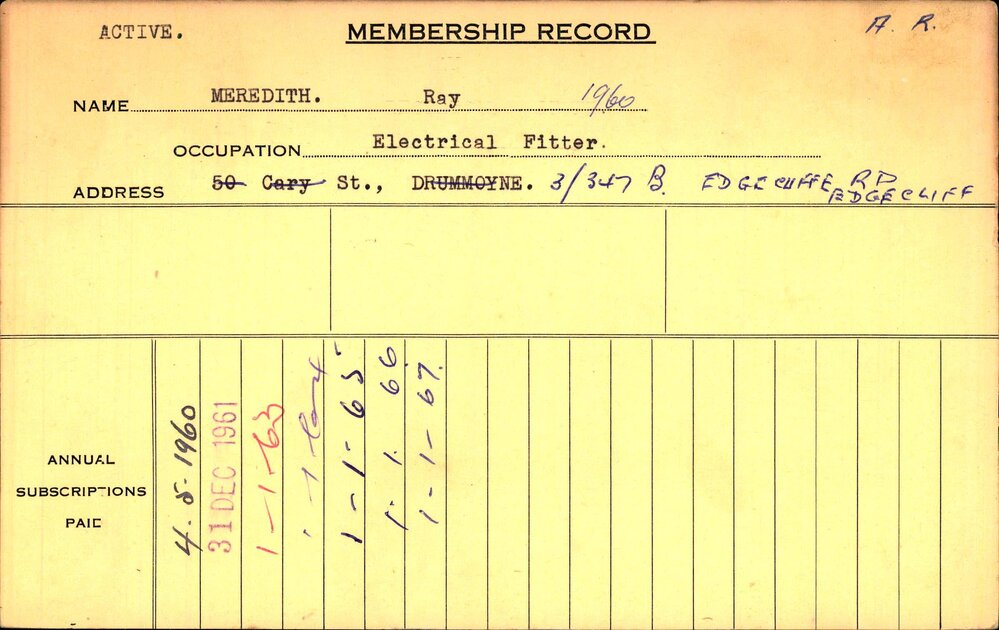 ACTIVE. MEMBERSHIP RECORD A. R.
NAME MEREDITH. Ray 1960
OCCUPATION Electrical Fitter.
ADDRESS 50 Cary St., DRUMMOYNE. 3/347 B. EDGECLIFFE RD
EDGECLIFF
ANNUAL
SUBSCRIPTIONS
PAID
4.5.1960
31 DEC 1961
1-1-63
1-1-65
1.1.66.
1-1-67.